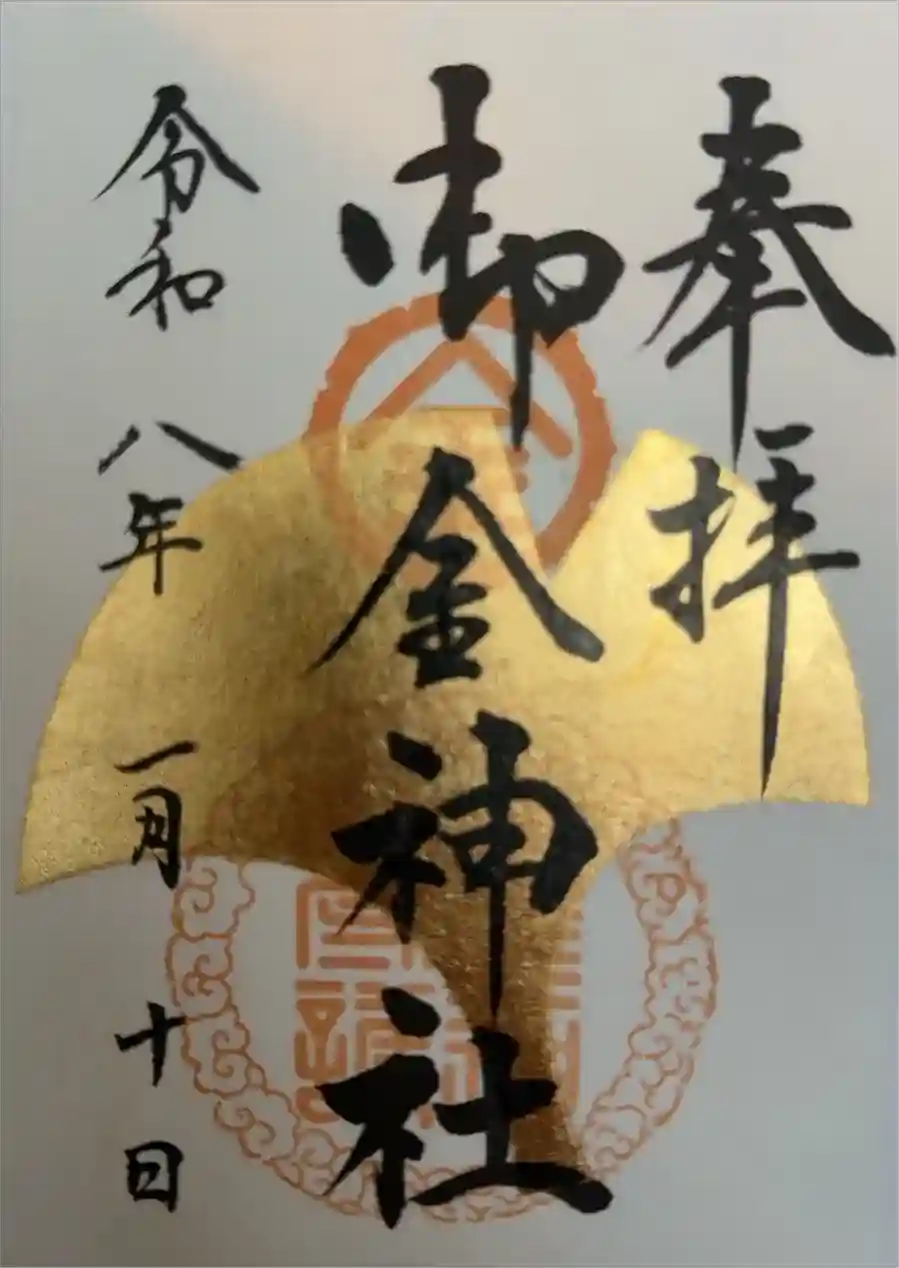 奉拝
御金神社
令和八年一月十日